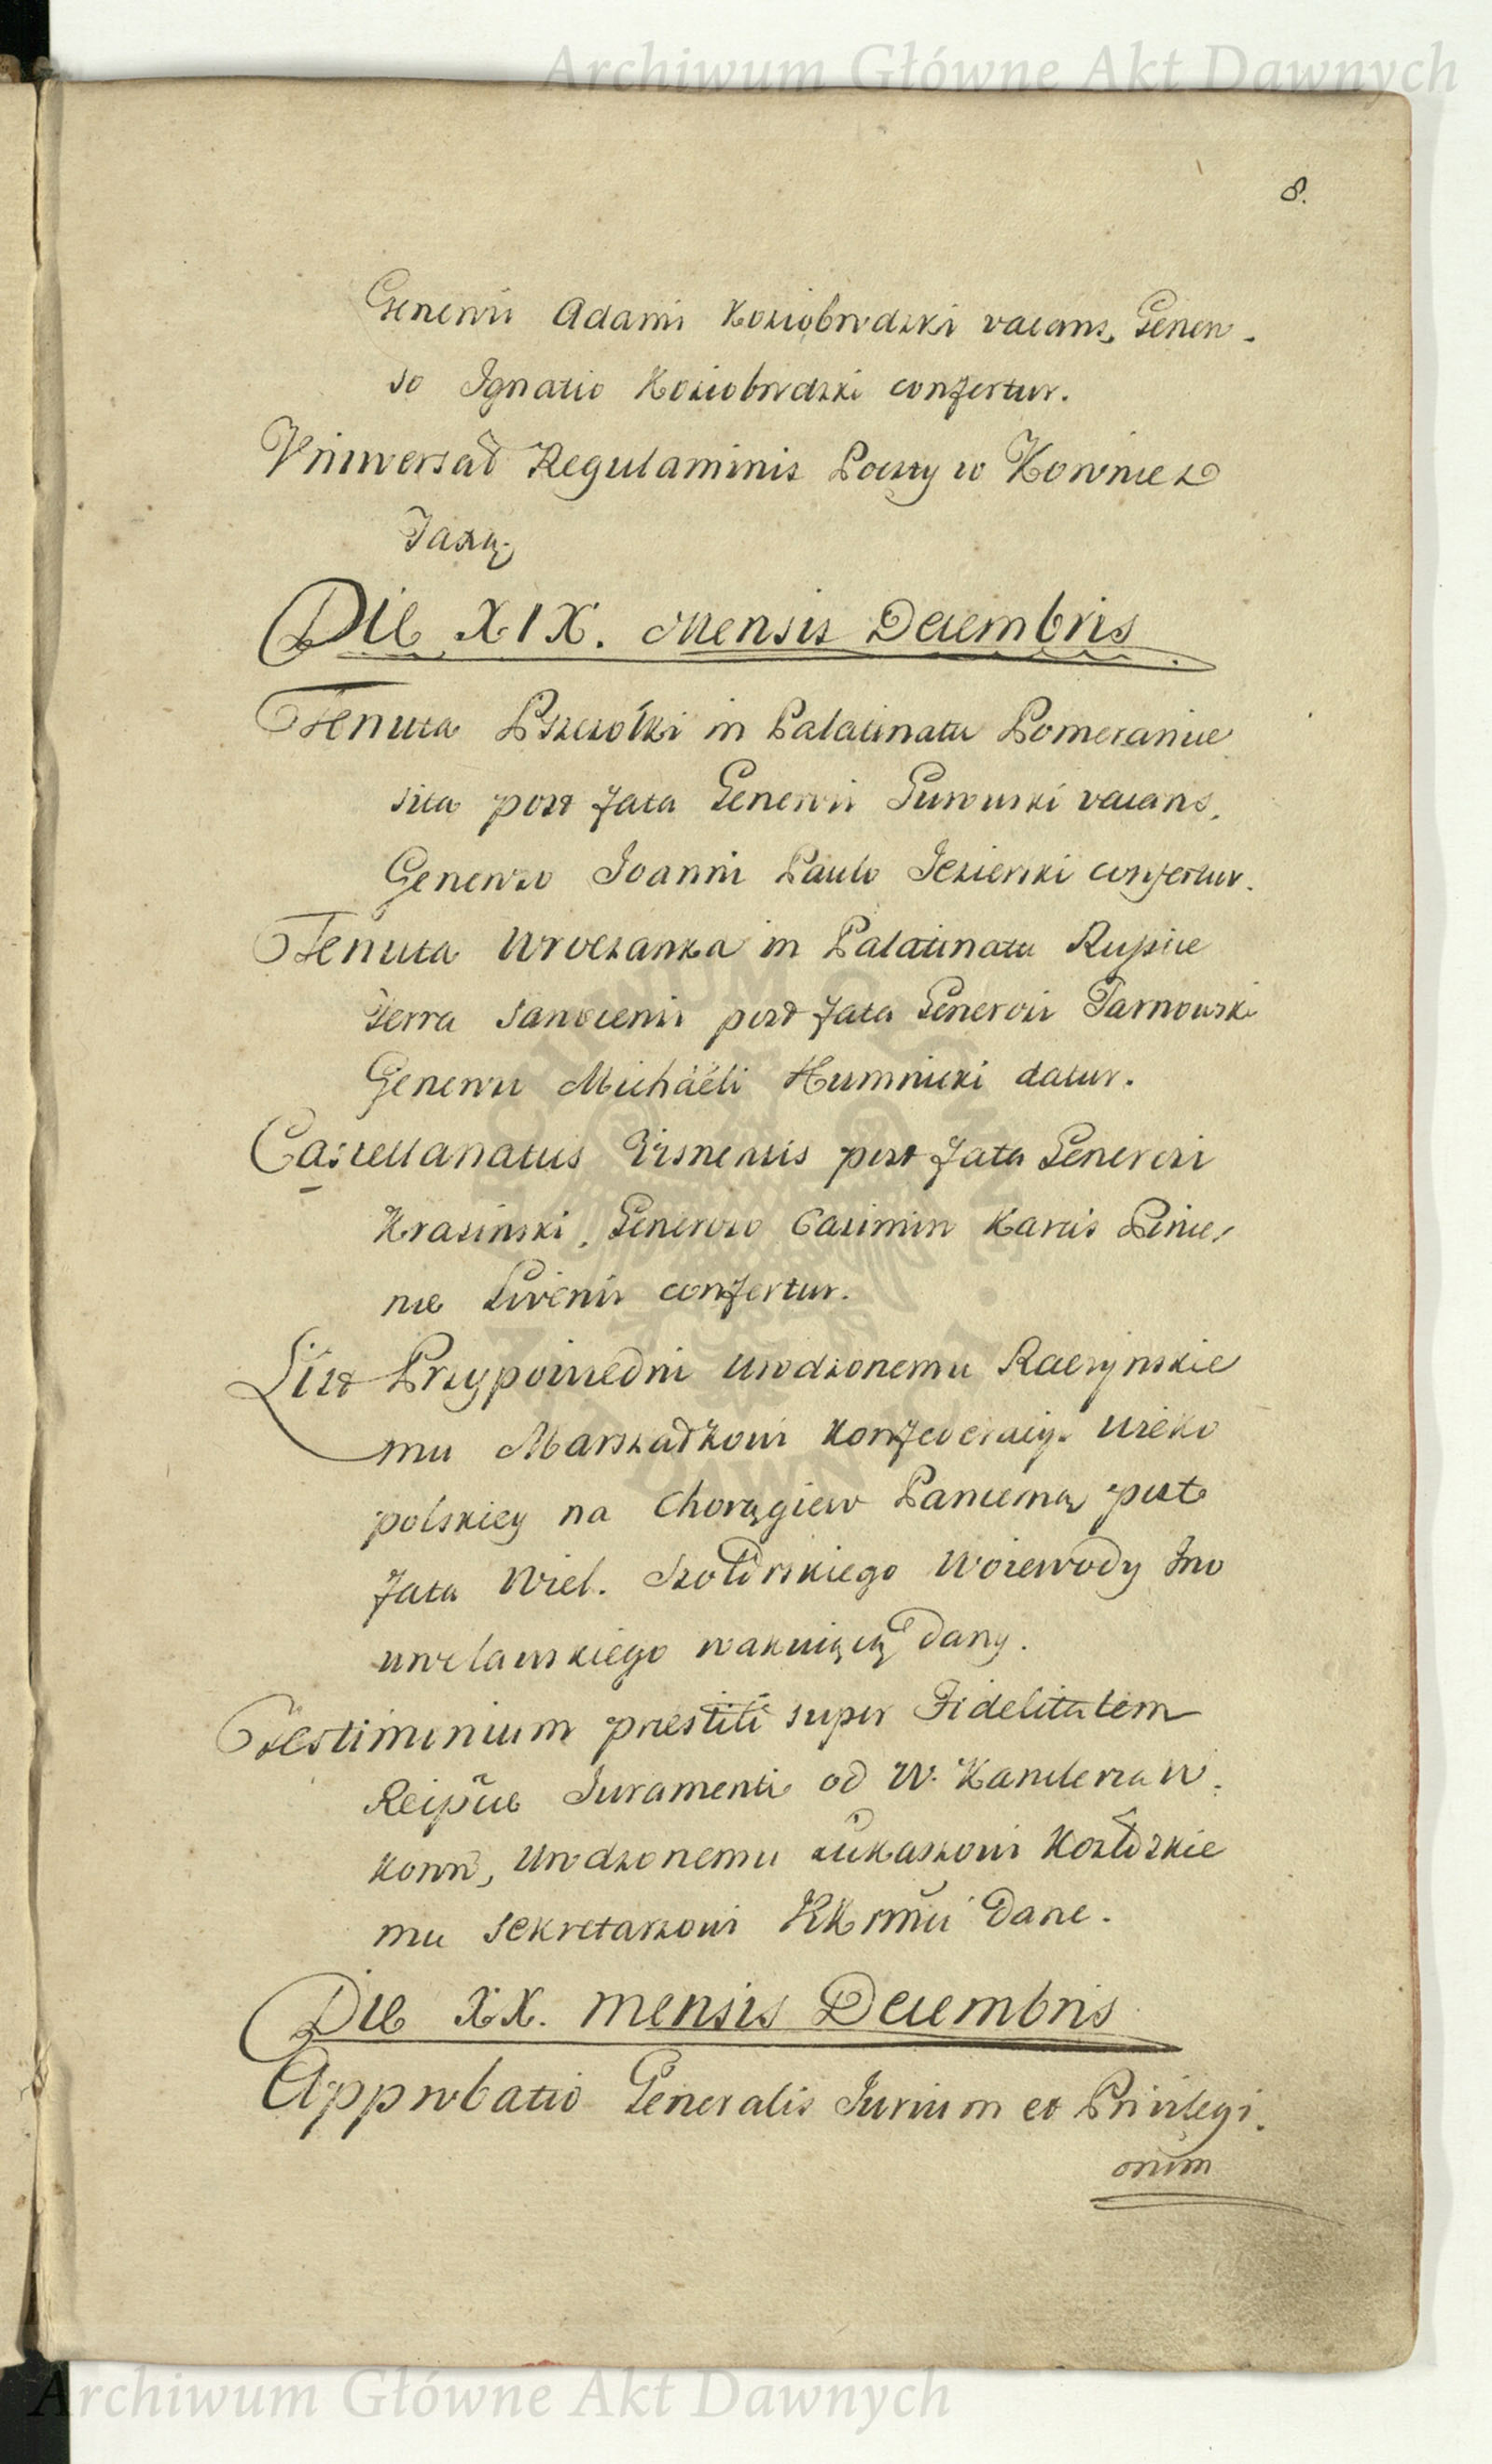 Archiwum Główne Akt Dawnych
8.
Generosi Adami Koziobrodzki vacans, Genero-
so Ignatio Koziobrodzki confertur.
Vniwersał Regulaminis Poczty w Kownie z
Taxą.
Die XIX. Mensis Decembris
Tenuta Pszczołki in Palatinatu Pomeraniæ
sita post fata Generosi Gurowski vacans,
Generoso Joanni Paulo Jezierski confertur.
Tenuta Wroczanka in Palatinatu Russiæ
Terra Sanocensi post fata Generosi Tarnowski
Generoso Michäeli Humnicki datur.
Castellanatus Visnensis post fata Generosi
Krasinski, Generoso Casimiro Karas
confertur.
List Przypowiedni Urodzonemu Raczynskie
mu Marszałkowi Konfederacyi Wielko
polskiey na Chorągiew Pancerną post
fata Wiel. Szołdrskiego Woiewody Ino
wrocławskiego wakuiącą dany.
Testimonium præstiti super Fidelitatem
Reipũe Juramenti od W. Kanclerza W.
Koron, Urodzonemu Łukaszowi
mu Sekretarzowi dane.
Die XX. Mensis Decembris
Approbatio Generalis Jurium et Privilegi-
orum
Archiwum Główne Akt Dawnych